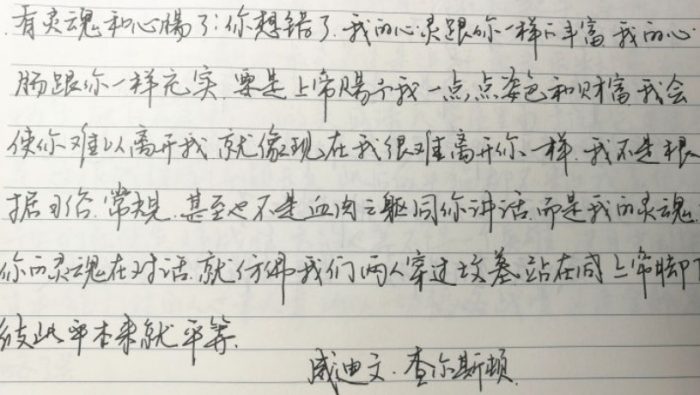 有灵魂和心肠了:你想错了.我的心灵跟你一样的丰富.我的心
肠跟你一样充实.要是上帝赐予我一点点姿色和财富我会
使你难以离开我就像现在我很难离开你一样.我不是根
据习俗.常规.甚至也不是血肉之躯同你讲话.而是我的灵魂
你的灵魂在对话.就仿佛我们两人穿过坟墓站在同上帝脚下
彼此平本来就平等.
威迪文.查尔斯顿